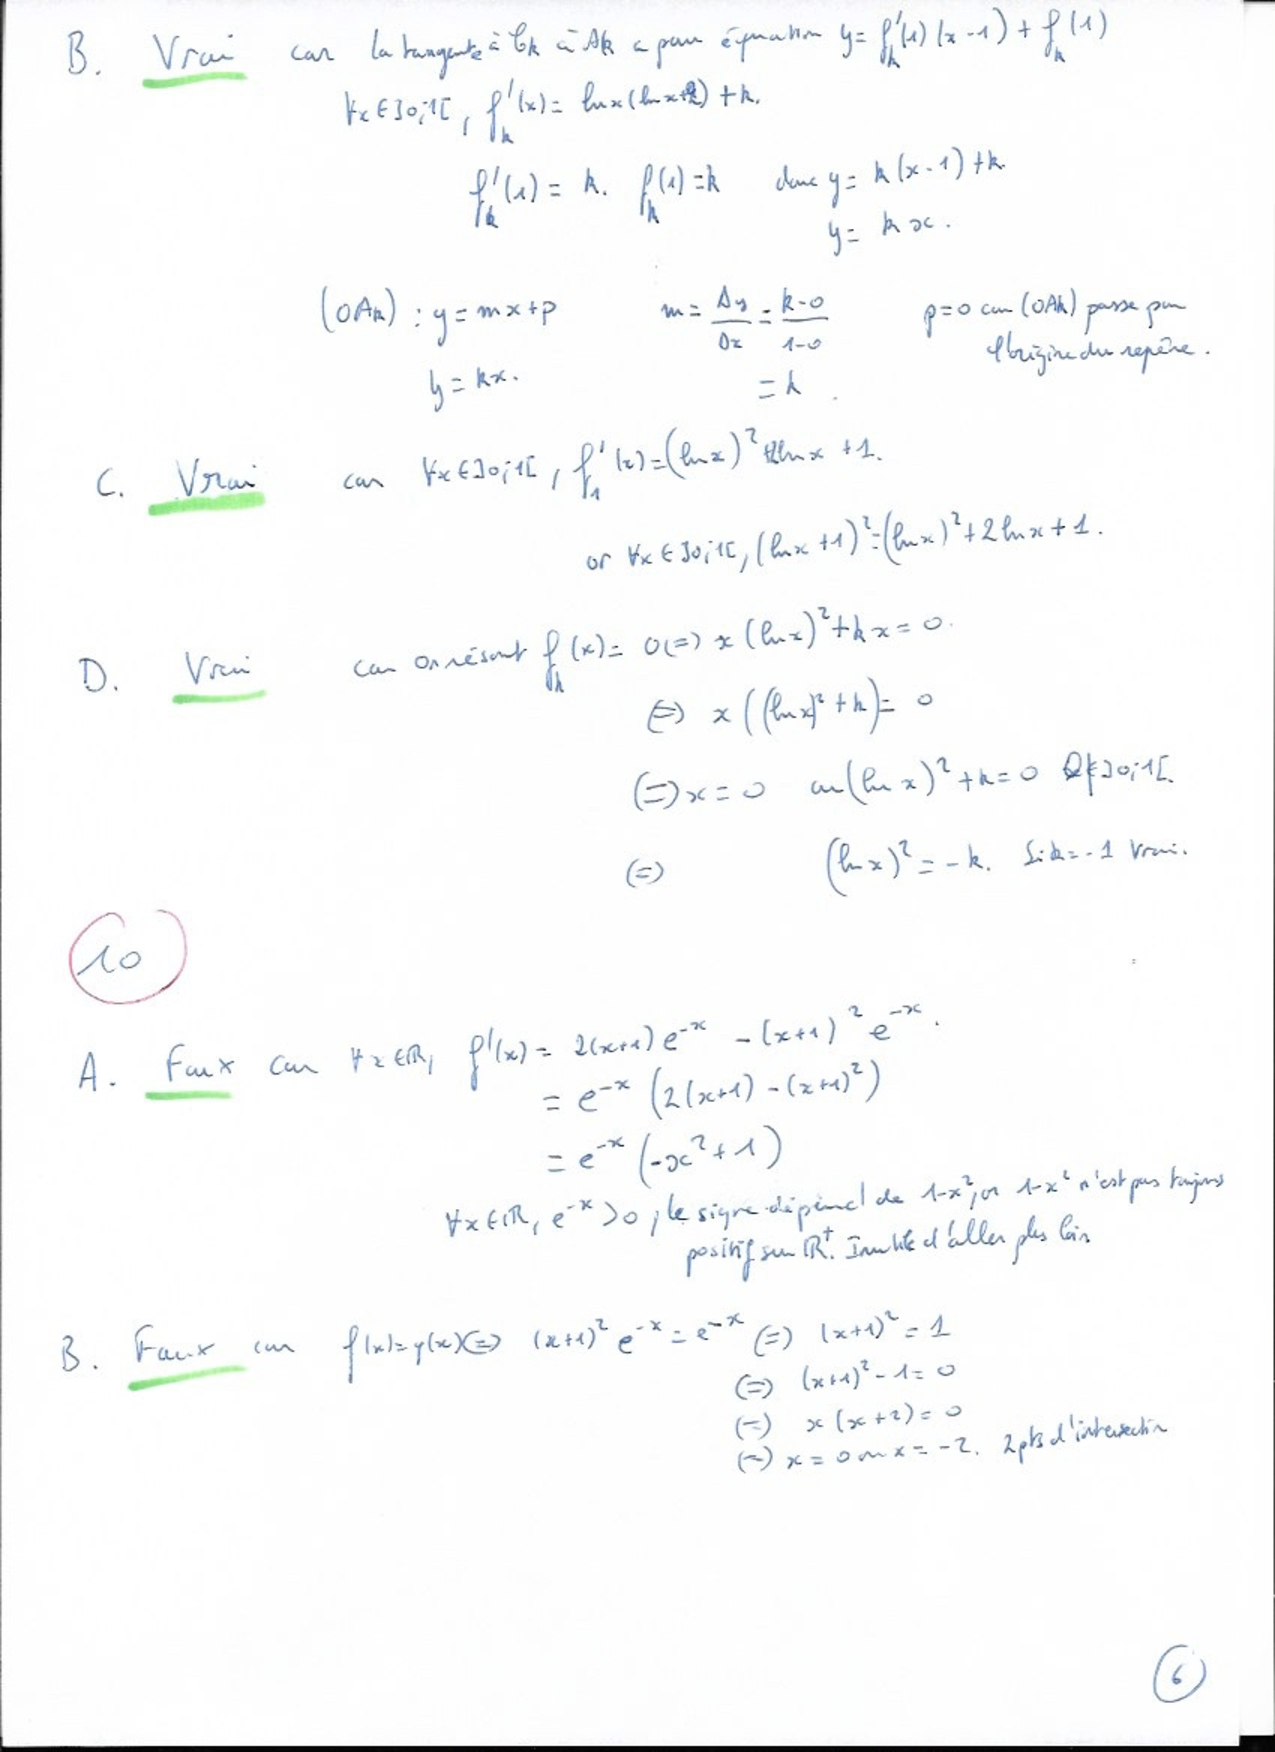 B. Vrai car la tangente à Ck à Ak a pour équation y = f'k(1)(x-1) + fk(1)
∀x∈]0;1[, f'k(x) = lnx(lnx+2) + k.
f'k(1) = k. fk(1) = k donc y = k(x-1) + k
y = kx.
(OAk) : y = mx+p m = Δy/Δx = k-0/1-0 p=0 car (OAk) passe par
y = kx. = k l'origine du repère.
C. Vrai car ∀x∈]0;1[, f'1(x) = (lnx)² + 2lnx + 1.
or ∀x∈]0;1[, (lnx+1)² = (lnx)² + 2lnx + 1.
D. Vrai car on résout fk(x) = 0 (=) x(lnx)² + kx = 0.
(=) x((lnx)² + k) = 0
(=) x = 0 ou (lnx)² + k = 0 0∉]0;1[.
(=) (lnx)² = -k. Si k = -1 Vrai.
10
A. Faux car ∀x∈ℝ, f'(x) = 2(x+1)e^-x - (x+1)² e^-x.
= e^-x (2(x+1) - (x+1)²)
= e^-x (-x² + 1)
∀x∈ℝ, e^-x > 0, le signe dépend de 1-x², or 1-x² n'est pas toujours
positif sur ℝ⁺. Inutile d'aller plus loin
B. Faux car f(x) = g(x) (=) (x+1)² e^-x = e^-x (=) (x+1)² = 1
(=) (x+1)² - 1 = 0
(=) x(x+2) = 0
(=) x = 0 ou x = -2. 2 pts d'intersection
6